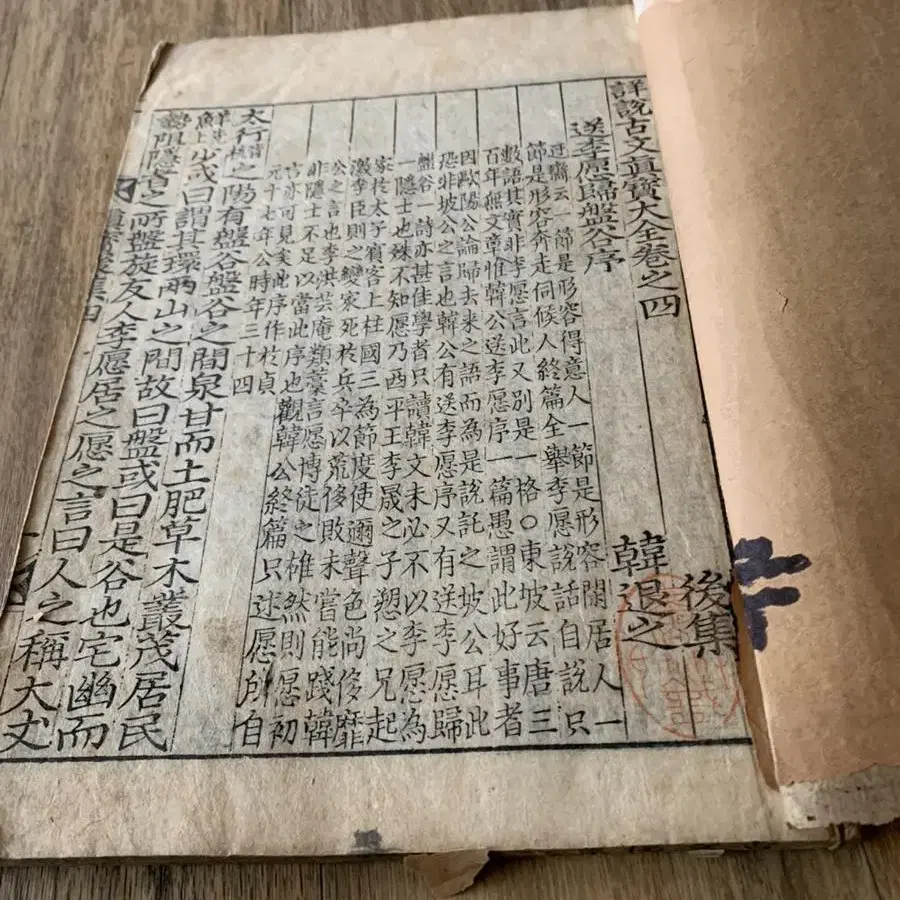 詳說古文眞寶大全卷之四 後集
送李愿歸盤谷序 韓退之
迂齋云一節是形容得意人一節是形容閒居人一
節是形容奔走伺候人終篇全舉李愿說話自說只
數語其實非李愿言此又別是一格○東坡云唐三
百年無文章惟韓公送李愿序一篇愚謂此好事者
因歐陽公論歸去来之語而為是說託之坡公耳此
恐非坡公之言也韓公有送李愿序又有送李愿歸
盤谷一詩亦甚佳學者只讀韓文未必不以李愿為
一隱士也殊不知愿乃西平王李晟之子愬之兄起
家從太子賓客上柱國三為節度使邇聲色尚侈靡
激李臣則之變家死於兵卒以荒侈敗未嘗能踐韓
公之言也李洪芸庵類藁言愿博徒之雄然則愿初
非隱士不足以當此序也觀韓公終篇只述愿所自
言亦可見矣此序作於貞
元十七年公時年三十四
太行之陽有盤谷盤谷之間泉甘而土肥草木叢茂居民
鮮少或曰謂其環兩山之間故曰盤或曰是谷也宅幽而
勢阻隱者之所盤旋友人李愿居之愿之言曰人之稱大丈